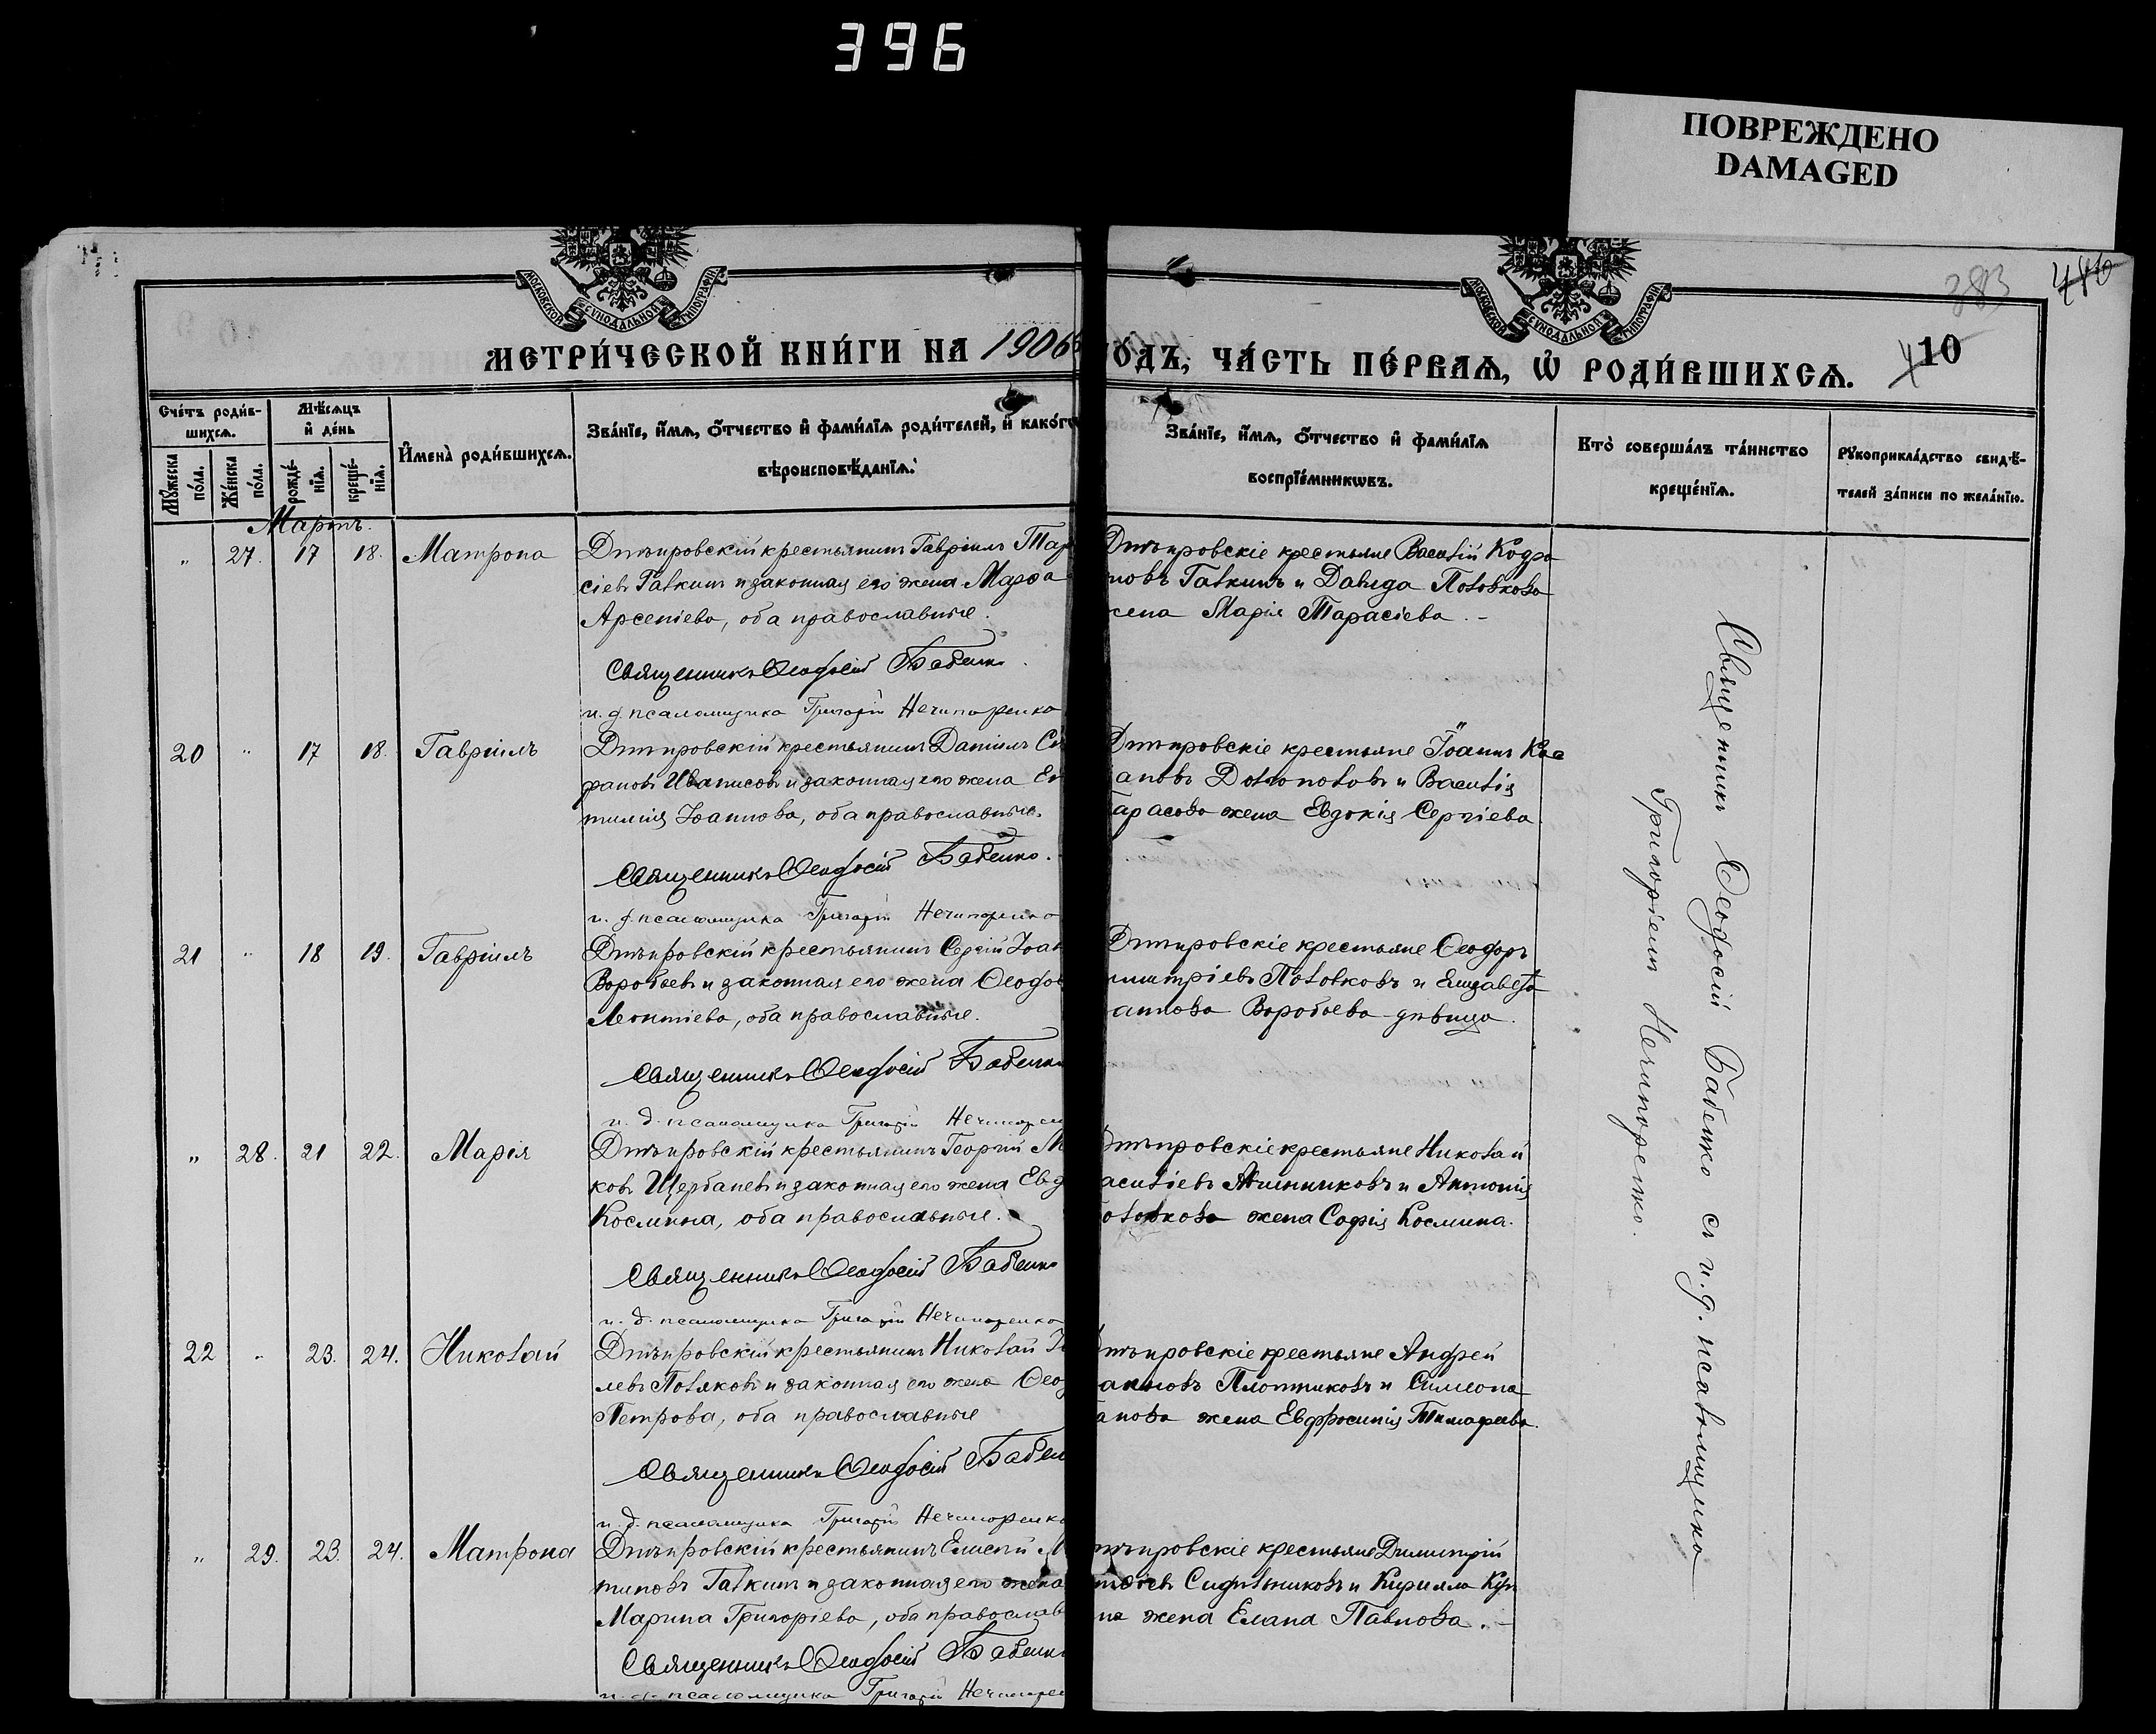 396
ПОВРЕЖДЕНО
DAMAGED
МОСКОВСКОЙ СѴНОДАЛЬНОЙ ТИПОГРАФІИ
МОСКОВСКОЙ СѴНОДАЛЬНОЙ ТИПОГРАФІИ
383
410
МЕТРИ́ЧЕСКОЙ КНИ́ГИ НА 1906
ОДЪ, ЧА́СТЬ ПЕ́РВАѦ, Ѡ҆ РОДИ́ВШИХСѦ.
10
Сче́тъ роди́в-
шихсѧ.
Мѣ́сѧцъ
и҆ де́нь
Мꙋ́жеска
по́ла.
Же́нска
по́ла.
рожде́-
нїѧ.
креще́-
нїѧ.
И҆мена̀ роди́вшихсѧ.
Зва́нїе, и҆́мѧ, ѻ҆́тчество и҆ фами́лїѧ роди́телей, и҆ како́г
вѣроисповѣ́данїѧ.
Зва́нїе, и҆́мѧ, ѻ҆́тчество и҆ фами́лїѧ
воспрїе́мникѡвъ.
Кто̀ соверша́лъ та́инство
креще́нїѧ.
Рꙋкоприкла́дство свидѣ́-
телей за́писи по жела́нїю.
Мартъ.
" 27. 17 18. Матрона
Днѣпровскій крестьянинъ Гавріилъ Тар
сіевъ Галкинъ и законная его жена Марѳа
Арсеніева, оба православные.
Священникъ Ѳеодосій Бабенко.
и. д. псаломщика Григорій Нечипоренко
Днѣпровскіе крестьяне Василій Кодра
товъ Галкинъ и Давида Половкова
жена Марія Тарасіева. -
20 " 17 18. Гавріилъ
Днѣпровскій крестьянинъ Даніилъ Сте
фановъ и законная его жена
Іоаннова, оба православные.
Священникъ Ѳеодосій Бабенко.
и. д. псаломщика Григорій Нечипоренко
Днѣпровскіе крестьяне Іоаннъ Кас
ановъ и Василія
арасова жена Евдокія Сергіева.
21 " 18 19. Гавріилъ
Днѣпровскій крестьянинъ Сергій Іоан
Воробьевъ и законная его жена Ѳеодос
Леонтіева, оба православные.
Священникъ Ѳеодосій Бабенко
и. д. псаломщика Григорій Нечипорен
Днѣпровскіе крестьяне Ѳеодоръ
имитріевъ Половковъ и Елизавета
Воробьева дѣвица.
" 28. 21 22. Марія
Днѣпровскій крестьянинъ Георгій М
ковъ Щербаневъ и законная его жена Евд
Космина, оба православные.
Священникъ Ѳеодосій Бабенко
и. д. псаломщика Григорій Нечипоренко
Днѣпровскіе крестьяне Николай
асиліевъ и Антонія
оловкова жена Софія Космина.
22 " 23. 24. Николай
Днѣпровскій крестьянинъ Николай
левъ Поляковъ и законная его жена Ѳеод
Петрова, оба православные
Священникъ Ѳеодосій Бабен
и. д. псаломщика Григорій Нечипоренко
нѣпровскіе крестьяне Андрей
Плотниковъ и Симеона
анова жена Евфросинія Тимофеева.
" 29. 23. 24. Матрона
Днѣпровскій крестьянинъ Елисей М
тиновъ Галкинъ и законная его жена
Марина Григоріева, оба православ
Священникъ Ѳеодосій Бабенко
и. д. псаломщика Григорій Нечипорен
нѣпровскіе крестьяне Димитрій
Сидѣльниковъ и Кирилла
жена Елена Павлова. -
Священникъ Ѳеодосій Бабенко съ и. д. псаломщика
Григоріемъ Нечипоренко.